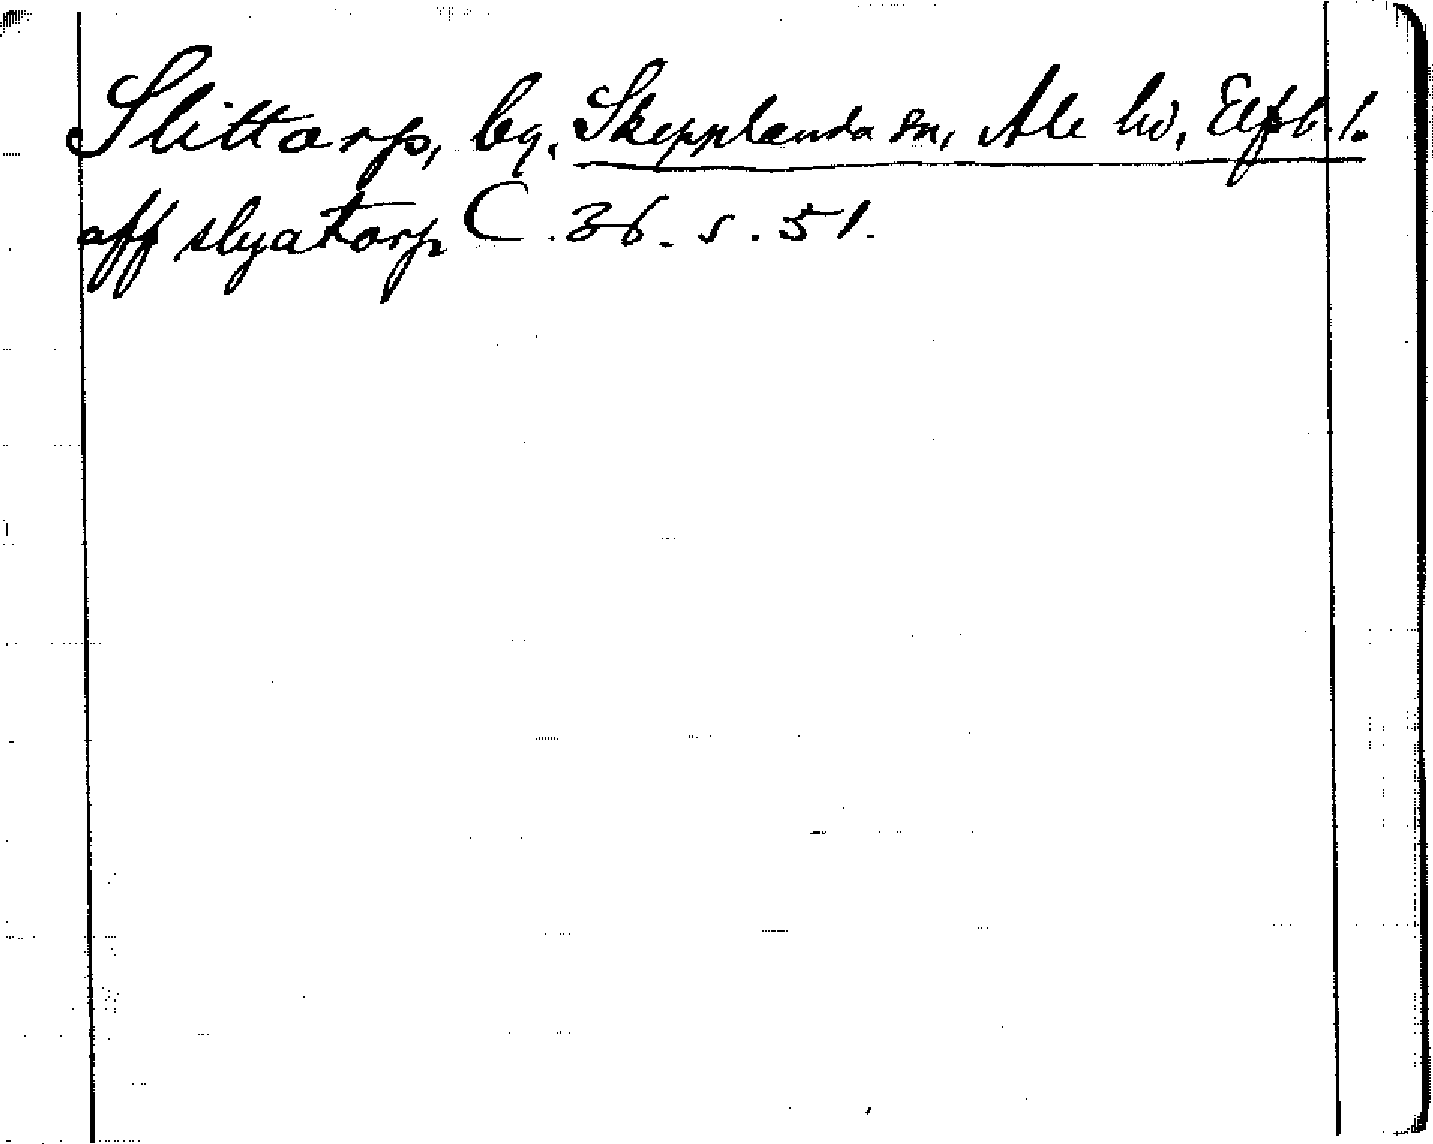 Slittorp, by, Skepplanda sn, Ale hd, Elfsb. l.
aff slyatorp C. 36. s. 51.